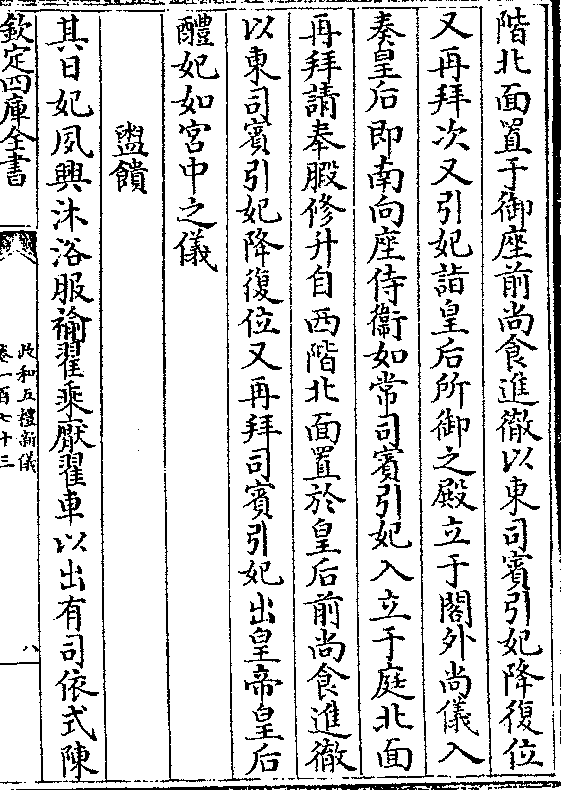 階北面置于御座前尚食進徹以東司賓引妃降復位
又再拜次又引妃詣皇后所御之殿立于閤外尚儀入
奏皇后即南向座侍衛如常司賓引妃入立于庭北面
再拜請奉腶修升自西階北面置於皇后前尚食進徹
以東司賓引妃降復位又再拜司賓引妃出皇帝皇后
醴妃如宫中之儀
盥饋
其日妃夙興沐浴服褕翟乘厭翟車以出有司依式陳
欽定四庫全書
政和五禮新儀
卷一百七十三
八